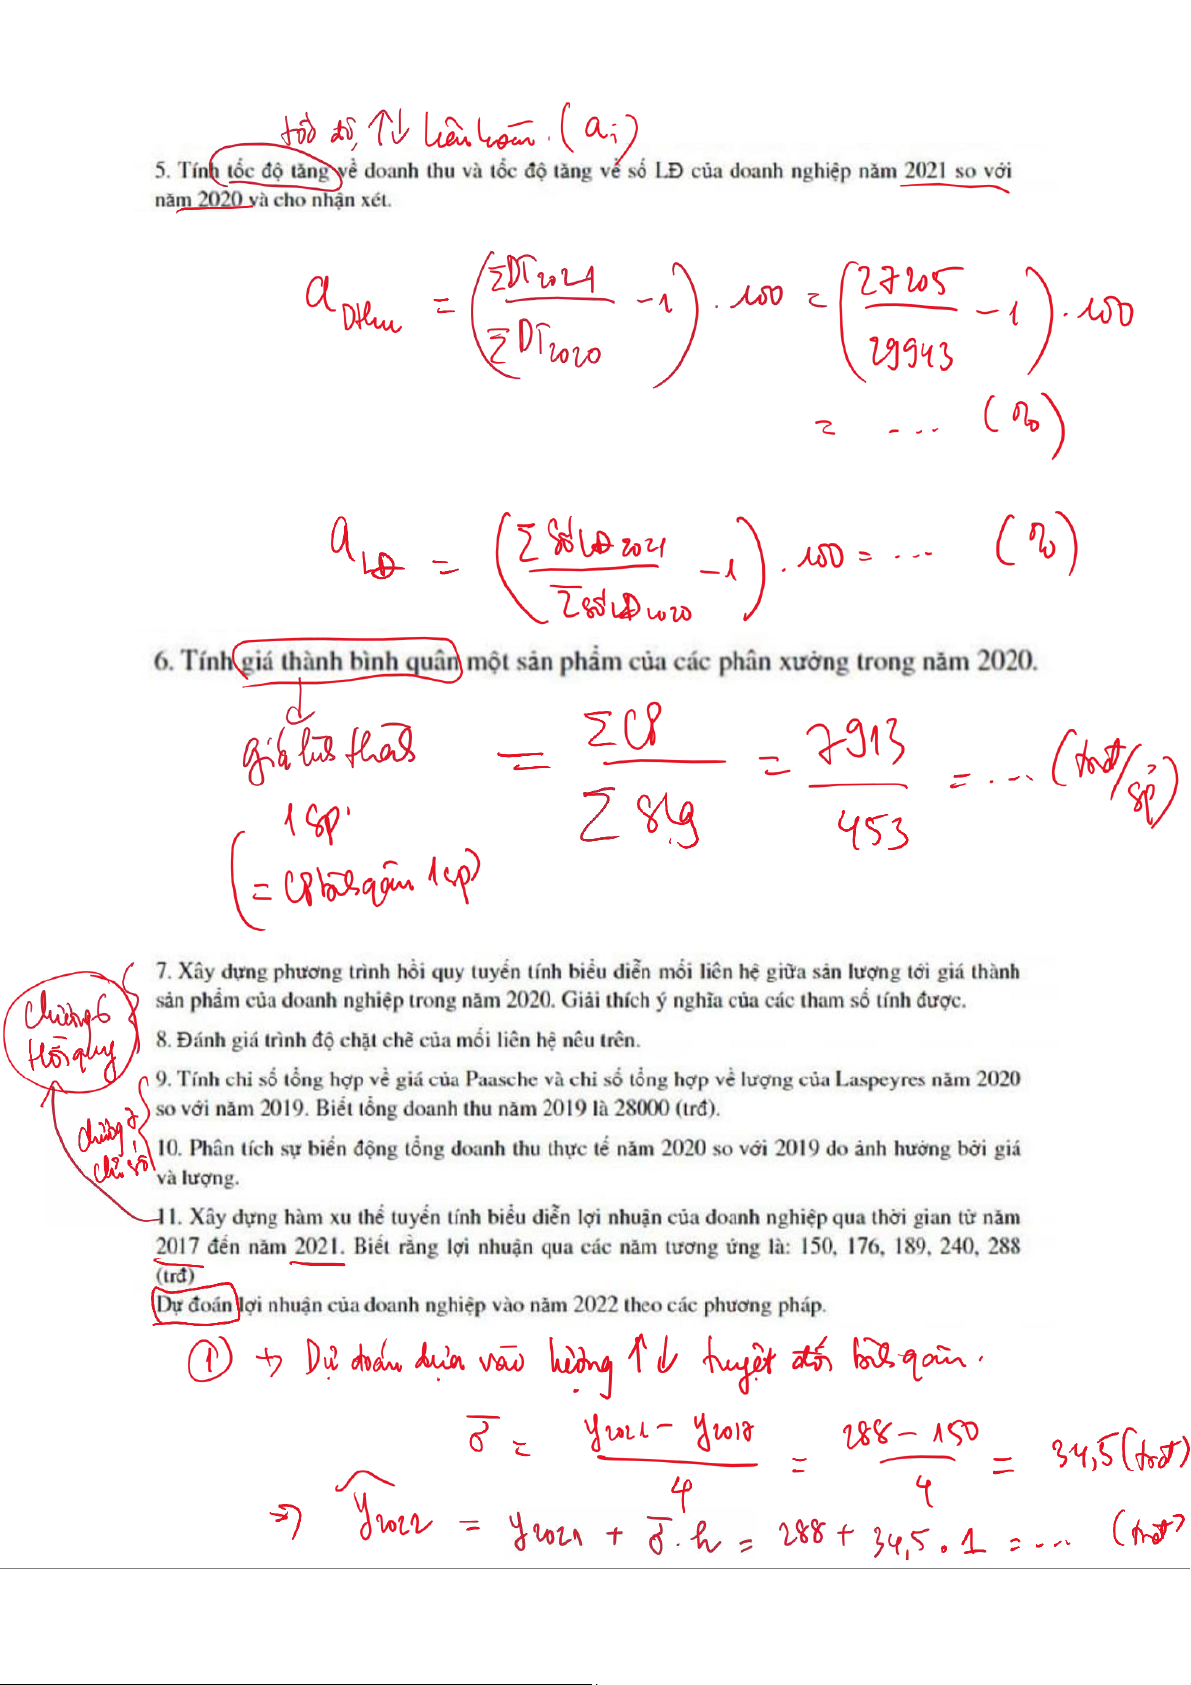 tốc độ ↑↓ liên hoàn. (ai)
5. Tính tốc độ tăng về doanh thu và tốc độ tăng về số LĐ của doanh nghiệp năm 2021 so với
năm 2020 và cho nhận xét.
a DThu = (ΣDT2021 / ΣDT2020 − 1) . 100 = (27205 / 29943 − 1) . 100
= ... (%)
a LĐ = (Σ Số LĐ 2021 / Σ Số LĐ 2020 − 1) . 100 = ... (%)
6. Tính giá thành bình quân một sản phẩm của các phân xưởng trong năm 2020.
giá thành
1 sp
= ΣCP / Σ slg = 7913 / 453 = ... (trđ/sp)
(= CP bình quân 1 sp)
7. Xây dựng phương trình hồi quy tuyến tính biểu diễn mối liên hệ giữa sản lượng tới giá thành
sản phẩm của doanh nghiệp trong năm 2020. Giải thích ý nghĩa của các tham số tính được.
Chương 6
Hồi quy
8. Đánh giá trình độ chặt chẽ của mối liên hệ nêu trên.
9. Tính chỉ số tổng hợp về giá của Paasche và chỉ số tổng hợp về lượng của Laspeyres năm 2020
so với năm 2019. Biết tổng doanh thu năm 2019 là 28000 (trđ).
Chương 7
chỉ số
10. Phân tích sự biến động tổng doanh thu thực tế năm 2020 so với 2019 do ảnh hưởng bởi giá
và lượng.
11. Xây dựng hàm xu thế tuyến tính biểu diễn lợi nhuận của doanh nghiệp qua thời gian từ năm
2017 đến năm 2021. Biết rằng lợi nhuận qua các năm tương ứng là: 150, 176, 189, 240, 288
(trđ)
Dự đoán lợi nhuận của doanh nghiệp vào năm 2022 theo các phương pháp.
① + Dự đoán dựa vào lượng ↑↓ tuyệt đối bình quân.
δ̅ = (y2021 − y2017) / 4 = (288 − 150) / 4 = 34,5 (trđ)
=> ŷ2022 = y2021 + δ̅ . h = 288 + 34,5 . 1 = ... (trđ)